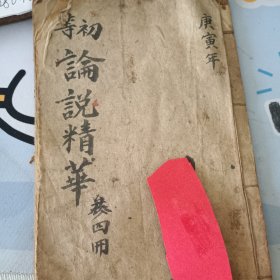 庚寅年
初等
論説精華
卷四冊